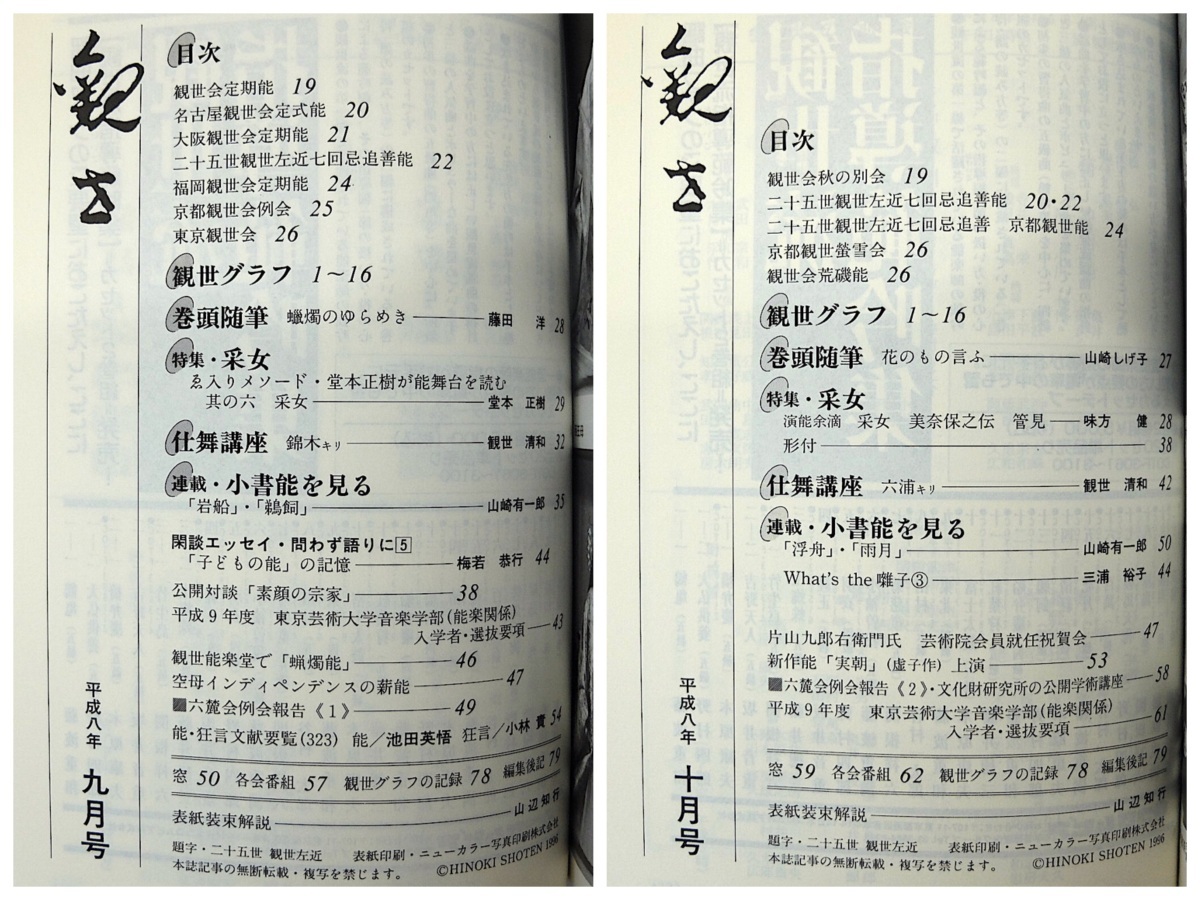 観世
目次
観世会定期能 19
名古屋観世会定式能 20
大阪観世会定期能 21
二十五世観世左近七回忌追善能 22
福岡観世会定期能 24
京都観世会例会 25
東京観世会 26
観世グラフ 1〜16
巻頭随筆 蠟燭のゆらめき 藤田 洋 28
特集・采女
ゑ入りメソード・堂本正樹が能舞台を読む
其の六 采女 堂本 正樹 29
仕舞講座 錦木キリ 観世 清和 32
連載・小書能を見る
「岩船」・「鵜飼」 山崎有一郎 35
閑談エッセイ・問わず語りに5
「子どもの能」の記憶 梅若 恭行 44
公開対談「素顔の宗家」 38
平成9年度 東京芸術大学音楽学部(能楽関係)
入学者・選抜要項 43
観世能楽堂で「蝋燭能」 46
空母インディペンデンスの薪能 47
■六麓会例会報告《1》 49
能・狂言文献要覧(323) 能/池田英悟 狂言/小林 責 54
窓 50 各会番組 57 観世グラフの記録 78 編集後記 79
表紙装束解説 山辺知行
題字・二十五世 観世左近 表紙印刷・ニューカラー写真印刷株式会社
本誌記事の無断転載・複写を禁じます。 ©HINOKI SHOTEN 1996
平成八年 九月号
観世
目次
観世会秋の別会 19
二十五世観世左近七回忌追善能 20・22
二十五世観世左近七回忌追善 京都観世能 24
京都観世螢雪会 26
観世会荒磯能 26
観世グラフ 1〜16
巻頭随筆 花のもの言ふ 山崎しげ子 27
特集・采女
演能余滴 采女 美奈保之伝 管見 味方 健 28
形付 38
仕舞講座 六浦キリ 観世 清和 42
連載・小書能を見る
「浮舟」・「雨月」 山崎有一郎 50
What's the 囃子③ 三浦 裕子 44
片山九郎右衛門氏 芸術院会員就任祝賀会 47
新作能「実朝」(虚子作) 上演 53
■六麓会例会報告《2》・文化財研究所の公開学術講座 58
平成9年度 東京芸術大学音楽学部(能楽関係)
入学者・選抜要項 61
窓 59 各会番組 62 観世グラフの記録 78 編集後記 79
表紙装束解説 山辺知行
題字・二十五世 観世左近 表紙印刷・ニューカラー写真印刷株式会社
本誌記事の無断転載・複写を禁じます。 ©HINOKI SHOTEN 1996
平成八年 十月号